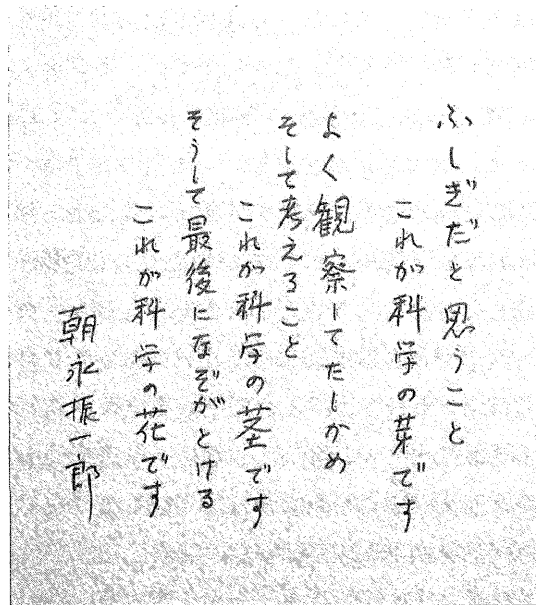 ふしぎだと思うこと
これが科学の芽です
よく観察してたしかめ
そして考えること
これが科学の茎です
そうして最後になぞがとける
これが科学の花です
朝永振一郎